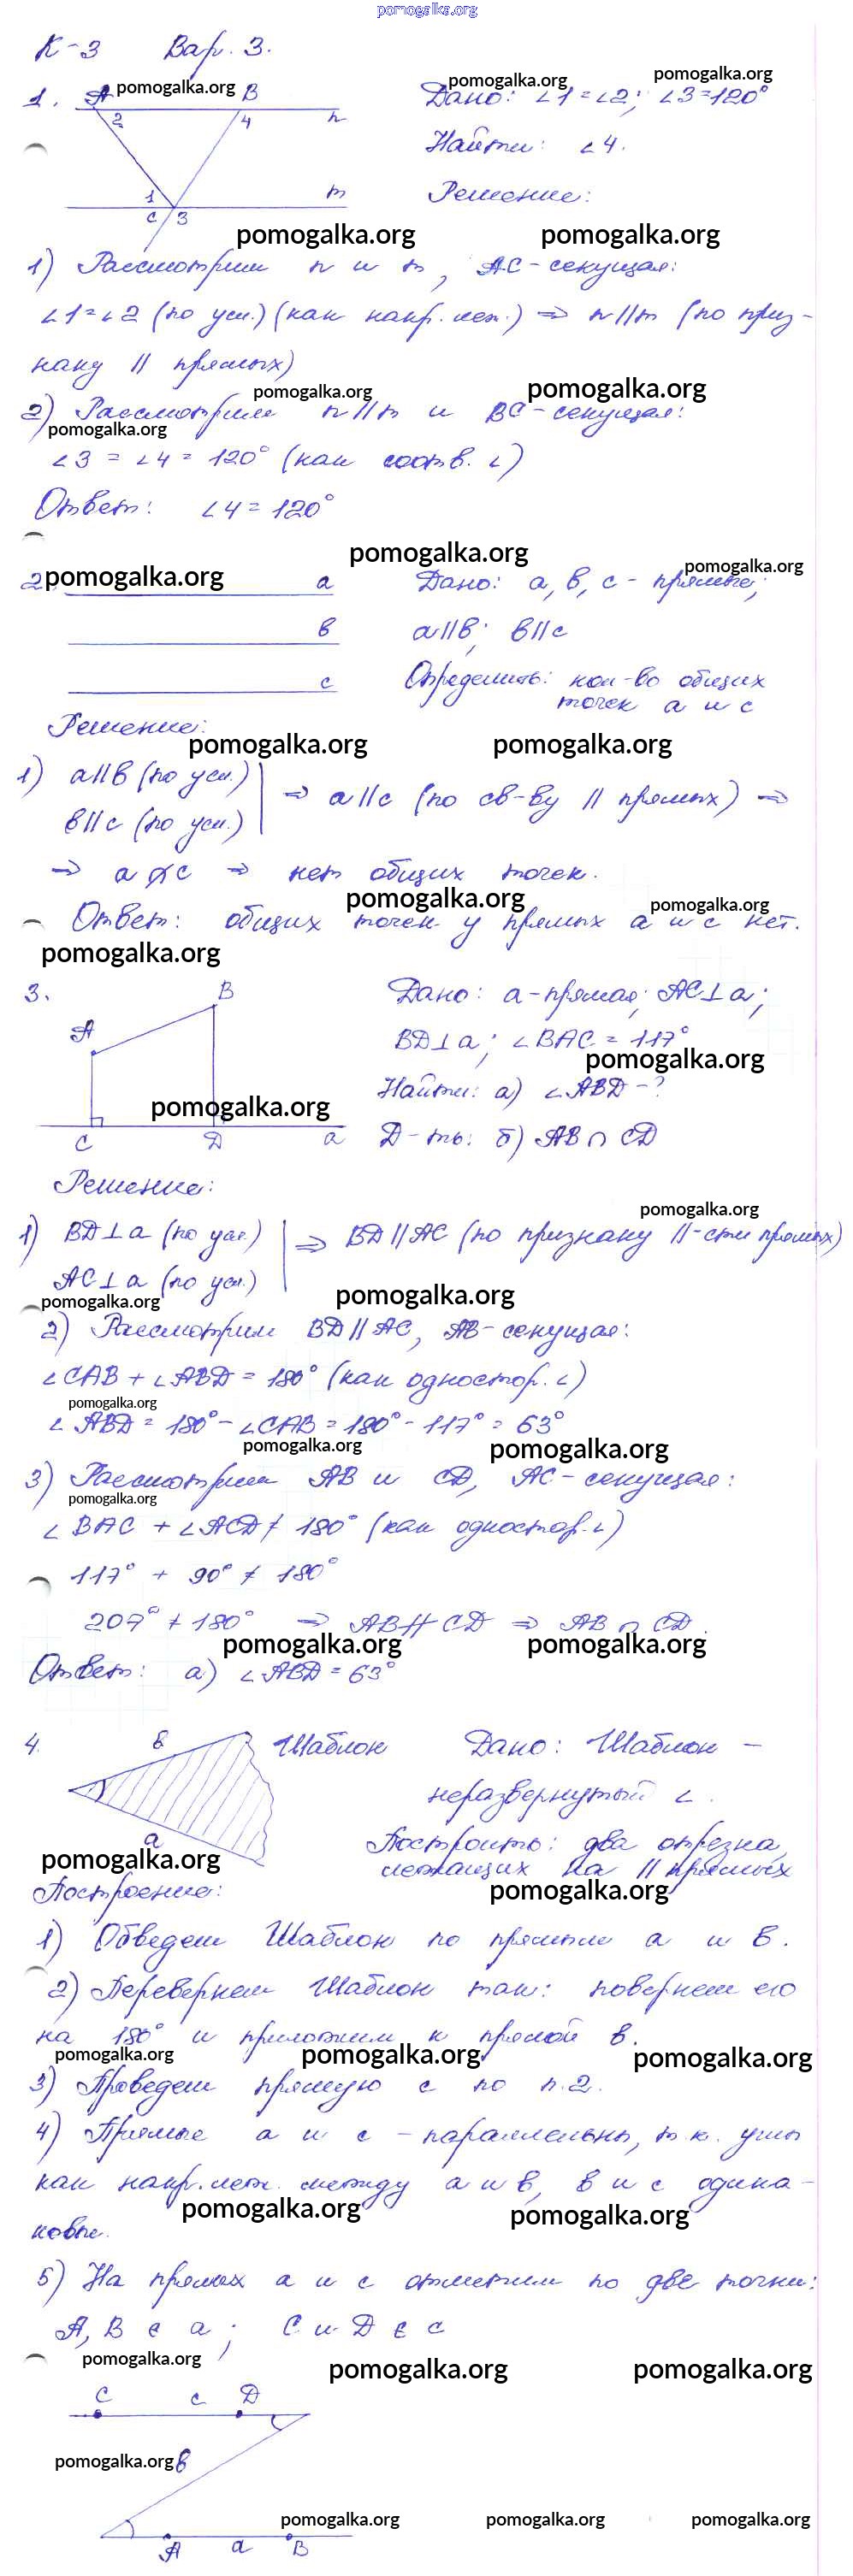 pomogalka.org
К-3 Вар. 3.
1. A pomogalka.org B pomogalka.org pomogalka.org
Дано: ∠1=∠2; ∠3=120°
2 4 n
Найти: ∠4.
1 m
Решение:
C 3
pomogalka.org pomogalka.org
1) Рассмотрим n и m, AC-секущая:
∠1=∠2 (по усл.) (как накр. леж.) ⇒ n||m (по приз-
наку || прямых)
pomogalka.org pomogalka.org
2) Рассмотрим n||m и BC-секущая:
pomogalka.org
∠3 = ∠4 = 120° (как соотв. ∠)
Ответ: ∠4 = 120°
pomogalka.org pomogalka.org
2. pomogalka.org a Дано: a, b, c - прямые;
b a||b; b||c
c Определить: кол-во общих
точек a и c
Решение:
pomogalka.org pomogalka.org
1) a||b (по усл.)
b||c (по усл.) ⇒ a||c (по св-ву || прямых) ⇒
⇒ a ∩̸ c ⇒ нет общих точек.
pomogalka.org pomogalka.org
Ответ: общих точек у прямых a и c нет.
pomogalka.org
3. B Дано: a-прямая; AC⊥a;
A BD⊥a; ∠BAC = 117°
pomogalka.org
Найти: а) ∠ABD-?
pomogalka.org
C D a Д-ть: б) AB ∩ CD
Решение:
pomogalka.org
1) BD⊥a (по усл.)
AC⊥a (по усл.) ⇒ BD||AC (по признаку ||-сти прямых)
pomogalka.org pomogalka.org
2) Рассмотрим BD||AC, AB-секущая:
∠CAB + ∠ABD = 180° (как одностор. ∠)
pomogalka.org
∠ABD = 180° - ∠CAB = 180° - 117° = 63°
pomogalka.org pomogalka.org
3) Рассмотрим AB и CD, AC-секущая:
pomogalka.org
∠BAC + ∠ACD ≠ 180° (как одностор. ∠)
117° + 90° ≠ 180°
207° ≠ 180° ⇒ AB∦CD ⇒ AB ∩ CD.
pomogalka.org pomogalka.org
Ответ: а) ∠ABD = 63°
4. b Шаблон Дано: Шаблон -
неразвернутый ∠.
a Построить: два отрезка,
pomogalka.org лежащих на || прямых
pomogalka.org
Построение:
1) Обведем Шаблон по прямым a и b.
2) Перевернем Шаблон так: повернем его
на 180° и приложим к прямой b.
pomogalka.org pomogalka.org pomogalka.org
3) Проведем прямую c по п.2.
4) Прямые a и c - параллельны, т.к. углы
как накр. леж. между a и b, b и c одина-
pomogalka.org pomogalka.org
ковые.
5) На прямых a и c отметим по две точки:
A, B ∈ a; C и D ∈ c
pomogalka.org pomogalka.org pomogalka.org
C c D
pomogalka.org b
pomogalka.org pomogalka.org pomogalka.org
A a B